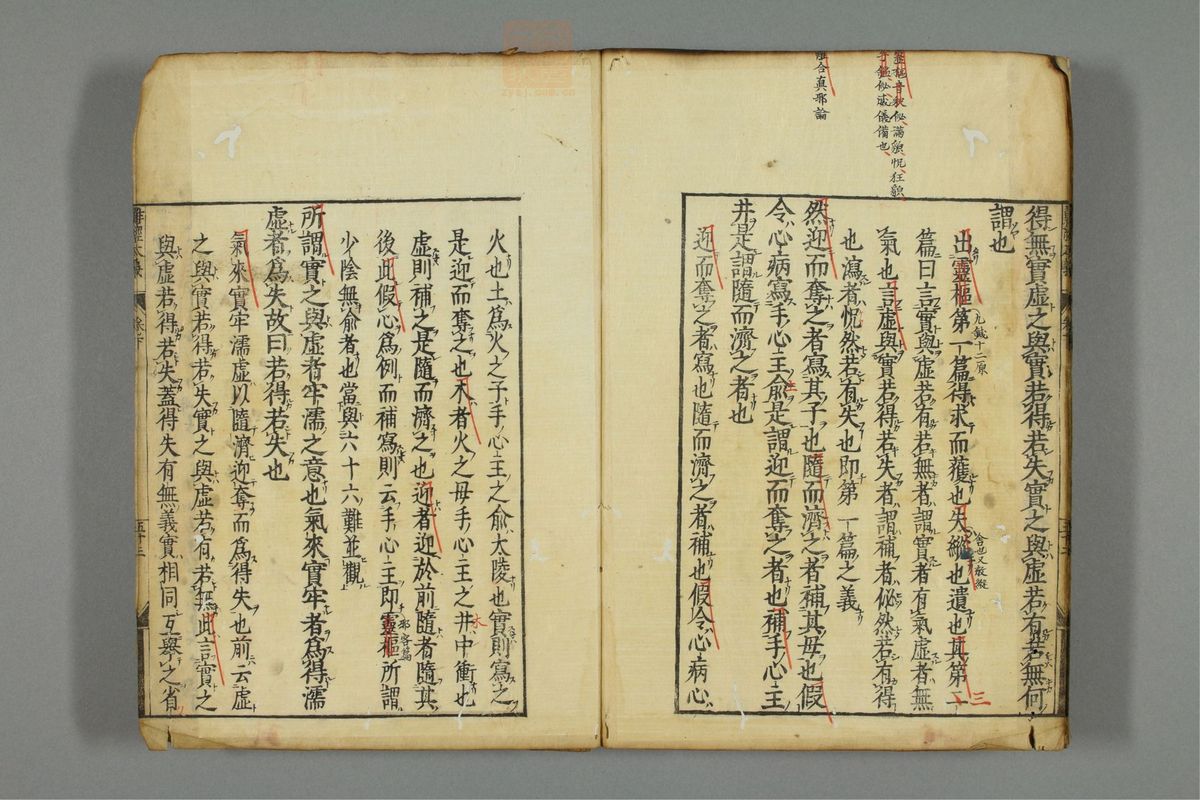 得無實虛之與實若得若失實之與虛若有若無何
謂也
出靈樞第一篇得求而獲也失縱也遺也其第二
九鍼十二原
舍也又放縱
三
篇曰言實與虛若有若無者謂實者有氣虛者無
氣也言虛與實若得若失者謂補者佖然若有得
也瀉者怳然若有失也即第一篇之義
然迎而奪之者寫其子也隨而濟之者補其母也假
令心病寫手心主俞是謂迎而奪之者也補手心主
井是謂隨而濟之者也
迎而奪之者寫也隨而濟之者補也假令心病心
靈樞音註佖滿貌怳狂貌
字鑑佖威儀備也
離合真邪論
火也土爲火之子手心主之俞大陵也實則寫之
是迎而奪之也木者火之母手心主之井中衝也
虛則補之是隨而濟之也迎者迎於前隨者隨其
後此假心爲例而補寫則云手心主即靈樞所謂
邪客篇
少陰無俞者也當與六十六難並觀
所謂實之與虛者牢濡之意也氣來實牢者爲得濡
虛者爲失故曰若得若失也
氣來實牢濡虛以隨濟迎奪而爲得失也前云虛
之與實若得若失實之與虛若有若無此言實之
與虛若得若失蓋得失有無義實相同互舉之省
五十三